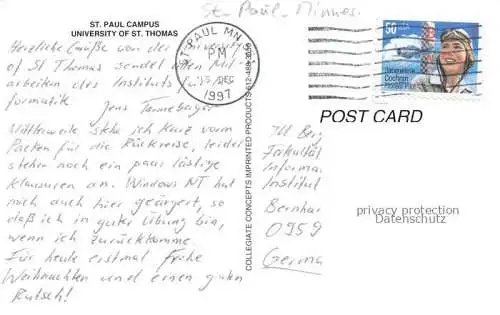 ST. PAUL CAMPUS
UNIVERSITY OF ST. THOMAS
St. Paul. Minnes.
Herzliche Grüße von der University
of St Thomas sendet allen Mit-
arbeitern des Instituts für In-
formatik
Jens
Mittlerweile stehe ich kurz vorm
Packen für die Rückreise, leider
stehen noch ein paar lästige
Klausuren an. Windows NT hat
mich auch hier geärgert, so
daß ich in guter Übung bin,
wenn ich zurückkomme.
Für heute erstmal frohe
Weihnachten und einen guten
Rutsch!
COLLEGIATE CONCEPTS IMPRINTED PRODUCTS 612-488-3056
ST PAUL MN
PM
15 DEC
1997
50
Jacqueline
Cochran
Pioneer Pilot
POST CARD
Berg
Fakultät
Informa
Institut
Bernhar
0959
Germa
privacy protection
Datenschutz